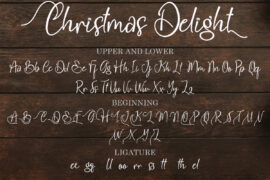 Christmas Delight
UPPER AND LOWER
Aa Bb Cc Dd Ee Ff Gg Hh Ii Jj Kk Ll Mm Nn Oo Pp Qq
Rr Ss Tt Uu Vv Ww Xx Yy Zz
BEGINNING
A B C D E F G H I J K L M N O P Q R S T U V
W X Y Z
LIGATURE
ee gg ll oo rr ss tt th el